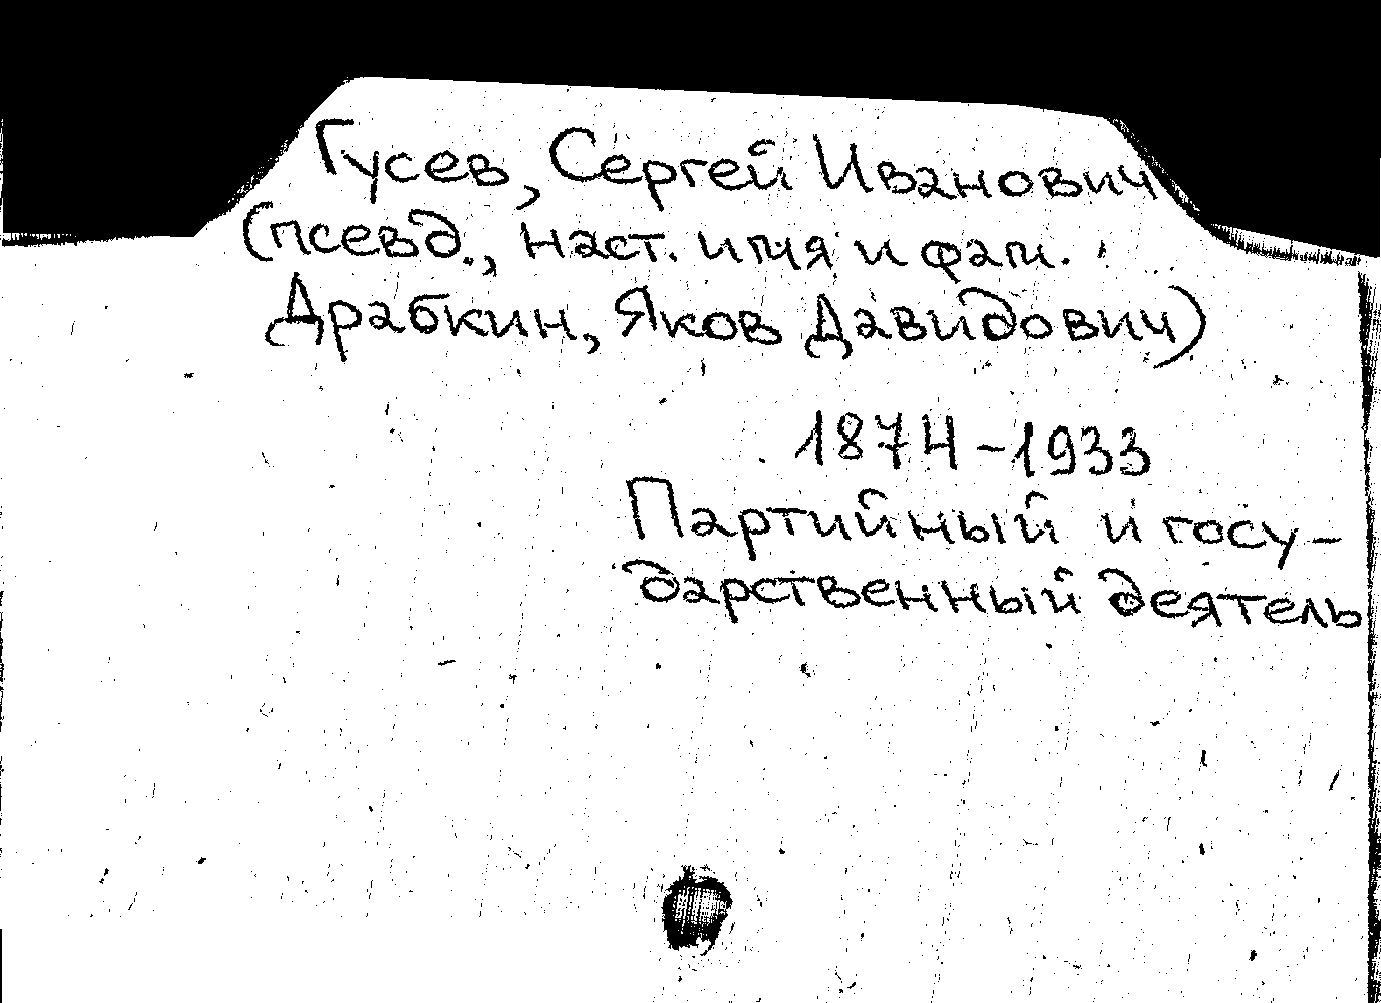 Гусев, Сергей Иванович
(псевд., наст. имя и фам.
Драбкин, Яков Давидович)
1874-1933
Партийный и госу-
дарственный деятель